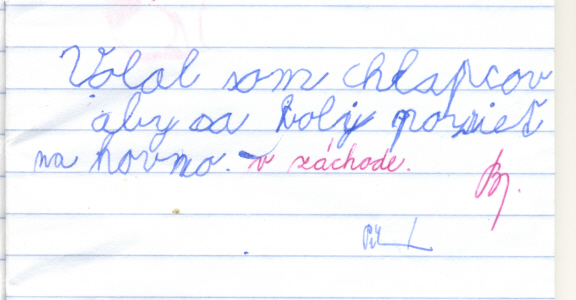 Volal som chlapcov
aby sa boli pozrieť
na hovno. v záchode.